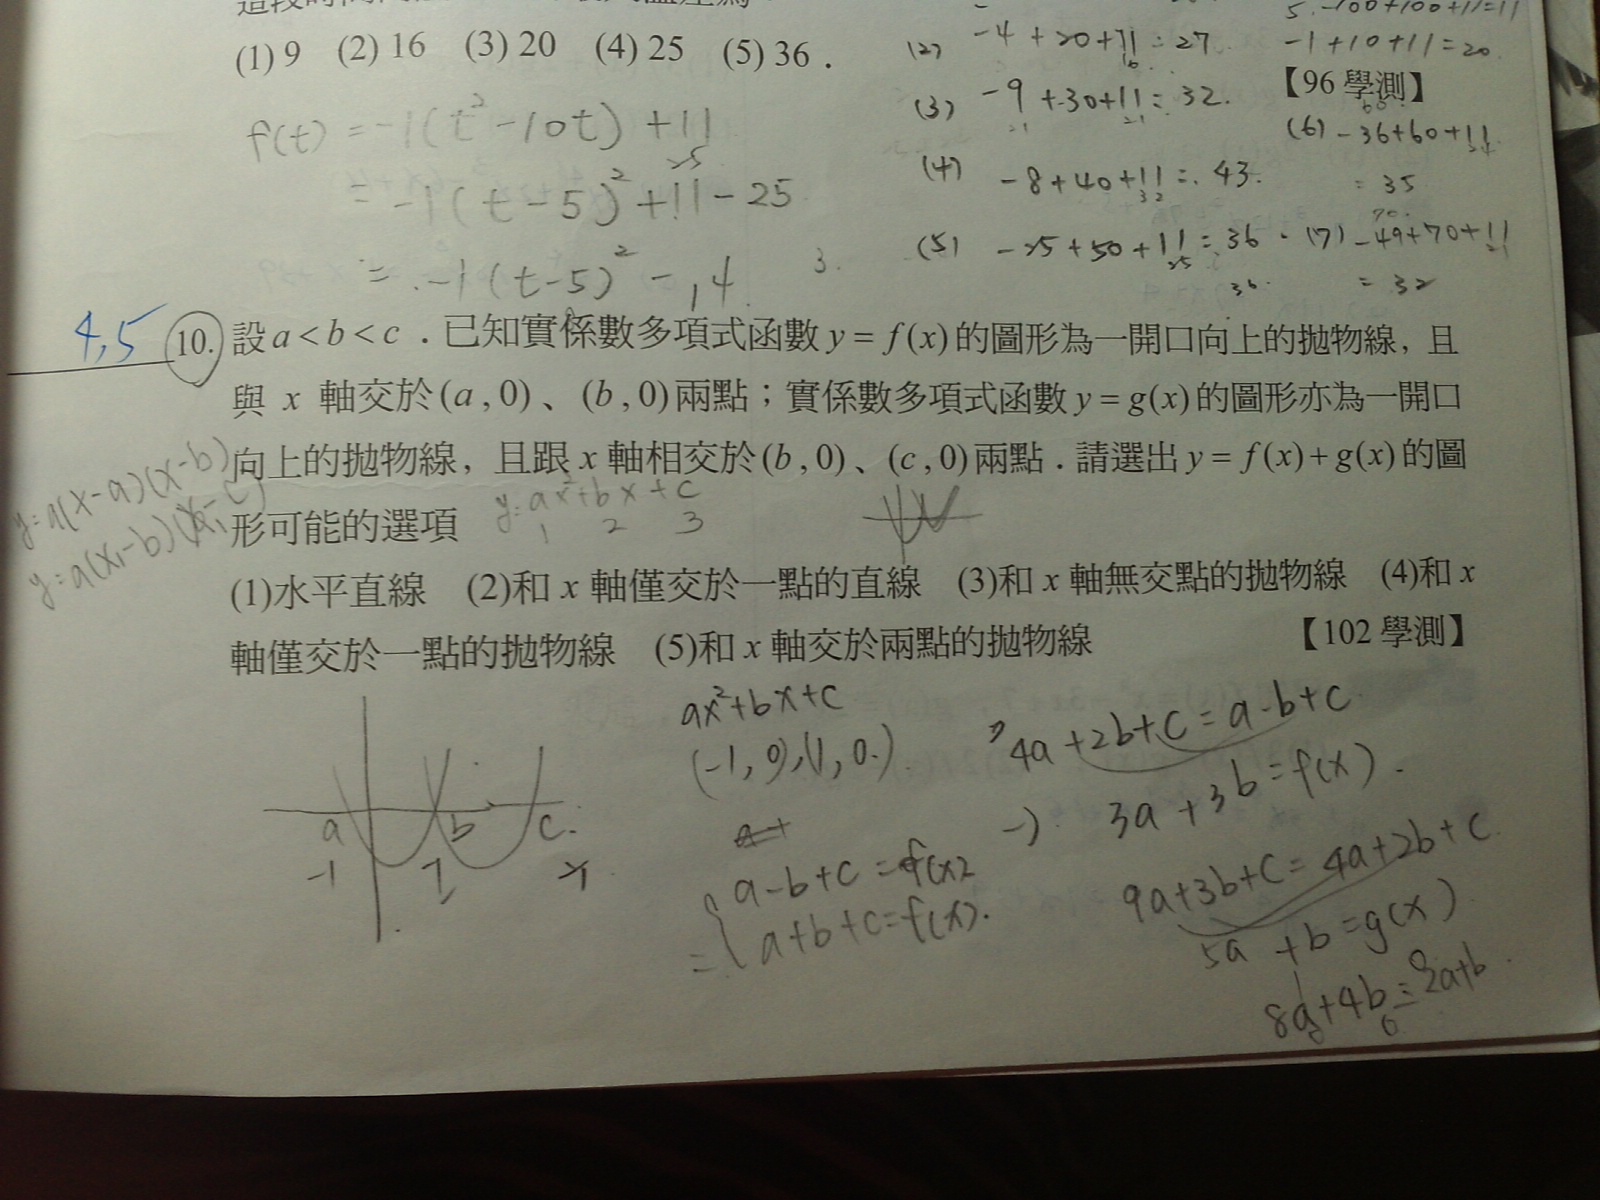 (1) 9 (2) 16 (3) 20 (4) 25 (5) 36．
5. -100+100+11=11
(2) -4+20+11=27.
-1+10+11=20.
【96 學測】
(3) -9+30+11=32.
f(t) = -1(t²-10t)+11
(6) -36+60+11
= 35
(4) -8+40+11=43.
= -1(t-5)²+11-25
(5) -25+50+11=36.
(7) -49+70+11
= 32
= -1(t-5)²-14
3.
4,5
10. 設 a < b < c．已知實係數多項式函數 y = f(x) 的圖形為一開口向上的拋物線，且
與 x 軸交於 (a , 0)、(b , 0) 兩點；實係數多項式函數 y = g(x) 的圖形亦為一開口
向上的拋物線，且跟 x 軸相交於 (b , 0)、(c , 0) 兩點．請選出 y = f(x) + g(x) 的圖
形可能的選項
y=a(x-a)(x-b)
y=ax²+bx+c
1 2 3
(1)水平直線 (2)和 x 軸僅交於一點的直線 (3)和 x 軸無交點的拋物線 (4)和 x
軸僅交於一點的拋物線 (5)和 x 軸交於兩點的拋物線 【102 學測】
ax²+bx+c
(-1, 0), (1, 0)
4a+2b+c=a-b+c
3a+3b=f(x).
a b c.
-1
a-b+c=f(x)
a+b+c=f(x).
9a+3b+c=4a+2b+c
5a+b=g(x)
8a+4b